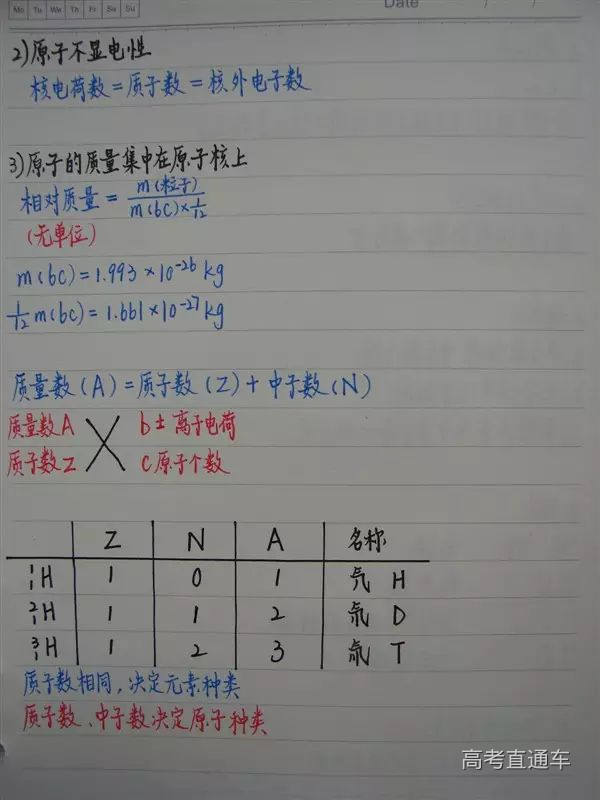 Mo Tu We Th Fr Sa Su
Date / /
2)原子不显电性
核电荷数=质子数=核外电子数
3)原子的质量集中在原子核上
相对质量= m(粒子) / m(6C)×1/12
(无单位)
m(6C)=1.993×10⁻²⁶kg
1/12 m(6C)=1.661×10⁻²⁷kg
质量数(A)=质子数(Z)+中子数(N)
质量数A b± 离子电荷
质子数Z c原子个数
Z N A 名称
¹₁H 1 0 1 氕 H
²₁H 1 1 2 氘 D
³₁H 1 2 3 氚 T
质子数相同,决定元素种类
质子数、中子数决定原子种类
高考直通车